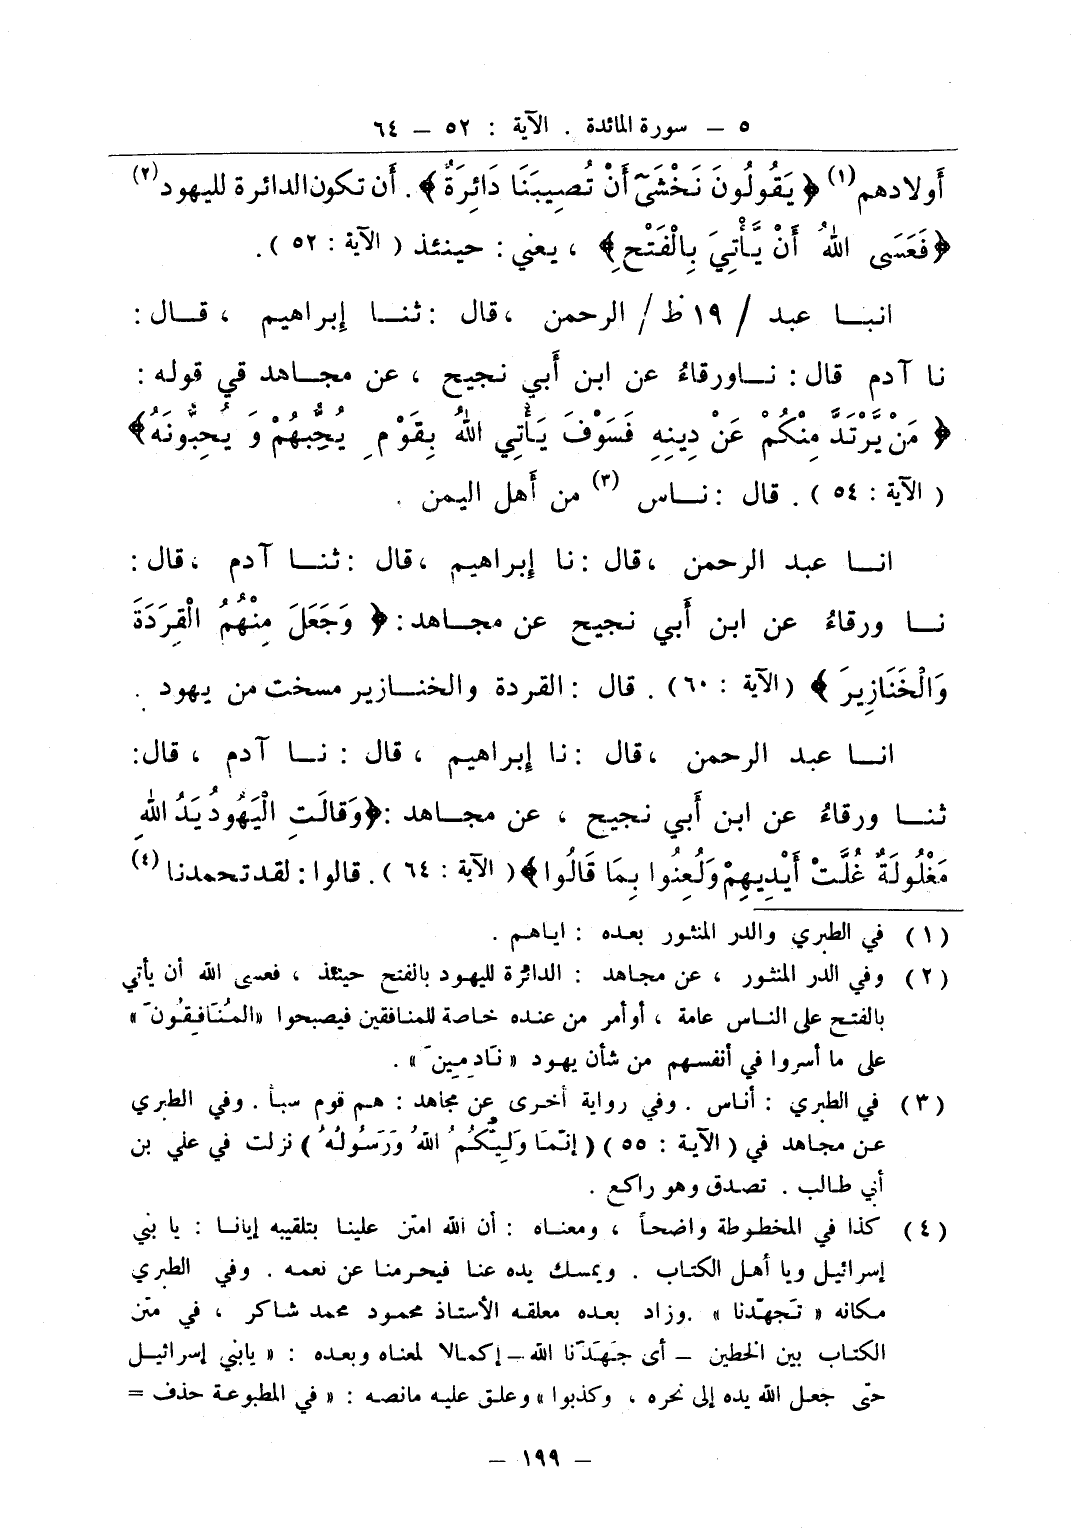 ٥ – سورة المائدة . الآية : ٥٢ – ٦٤
أولادهم (١) ﴿ يَقُولُونَ نَخْشَىٰ أَنْ تُصِيبَنَا دَائِرَةٌ ﴾ . أن تكون الدائرة لليهود (٢)
﴿ فَعَسَى اللهُ أَنْ يَّأْتِيَ بِالْفَتْحِ ﴾ ، يعني : حينئذ ( الآية : ٥٢ ) .
انبــا عبد / ١٩ ظ / الرحمن ، قال : ثنــا إبراهيم ، قــال :
نا آدم قال : نــاورقاءُ عن ابن أبي نجيح ، عن مجــاهد قي قوله :
﴿ مَنْ يَّرْتَدَّ مِنْكُمْ عَنْ دِينِهِ فَسَوْفَ يَأْتِي اللهُ بِقَوْمٍ يُحِبُّهُمْ وَ يُحِبُّونَهُ ﴾
( الآية : ٥٤ ) . قال : نــاس (٣) من أهل اليمن .
انــا عبد الرحمن ، قال : نا إبراهيم ، قال : ثنــا آدم ، قال :
نــا ورقاءُ عن ابن أبي نجيح عن مجــاهد : ﴿ وَجَعَلَ مِنْهُمُ الْقِرَدَةَ
وَالْخَنَازِيرَ ﴾ ( الآية : ٦٠ ) . قال : القردة والخنــازير مسخت من يهود .
انــا عبد الرحمن ، قال : نا إبراهيم ، قال : نــا آدم ، قال :
ثنــا ورقاءُ عن ابن أبي نجيح ، عن مجــاهد : ﴿ وَقَالَتِ الْيَهُودُ يَدُ اللهِ
مَغْلُولَةٌ غُلَّتْ أَيْدِيهِمْ وَلُعِنُوا بِمَا قَالُوا ﴾ ( الآية : ٦٤ ) . قالوا : لقد تحمدنا (٤)
(١) في الطبري والدر المنثور بعده : اياهم .
(٢) وفي الدر المنثور ، عن مجاهد : الدائرة لليهود بالفتح حينئذ ، فعسى الله أن يأتي
بالفتح على الناس عامة ، أو أمر من عنده خاصة للمنافقين فيصبحوا «المُنَافِقُونَ»
على ما أسروا في أنفسهم من شأن يهود « نَادِمِينَ » .
(٣) في الطبري : أناس . وفي رواية أخرى عن مجاهد : هم قوم سبأ . وفي الطبري
عن مجاهد في ( الآية : ٥٥ ) ( إنّمَا وَلِيُّكُمُ اللهُ وَرَسُولُهُ ) نزلت في علي بن
أبي طالب . تصدق وهو راكع .
(٤) كذا في المخطوطة واضحاً ، ومعناه : أن الله امتن علينا بتلقيبه إيانا : يا بني
إسرائيل ويا أهل الكتاب . ويمسك يده عنا فيحرمنا عن نعمه . وفي الطبري
مكانه « تَجهّدنا » .وزاد بعده معلقه الأستاذ محمود محمد شاكر ، في متن
الكتاب بين الخطين – أى جَهَدَنَا الله – إكمالا لمعناه وبعده : « يابني إسرائيل
حتى جعل الله يده إلى نحره ، وكذبوا » وعلق عليه مانصه : « في المطبوعة حذف =
– ١٩٩ –